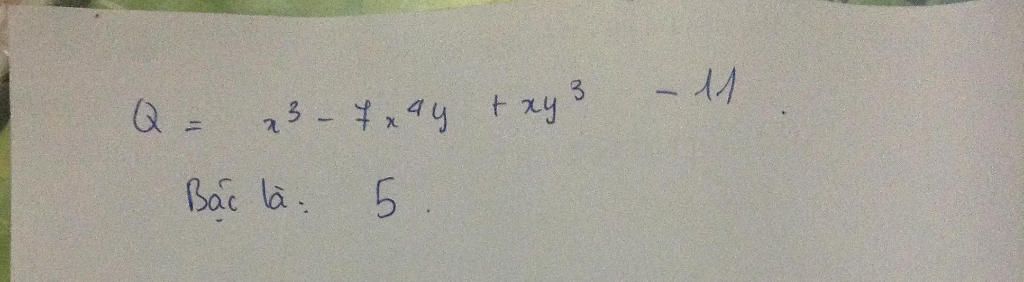 Q = x³ - 7x⁴y + xy³ - 11.
Bậc là: 5.